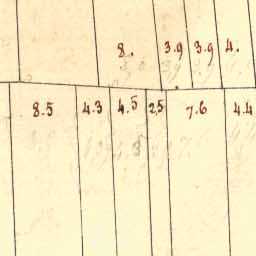 8. 3.9 3.9 4.
8.5 4.3 4.5 25 7.6 4.4